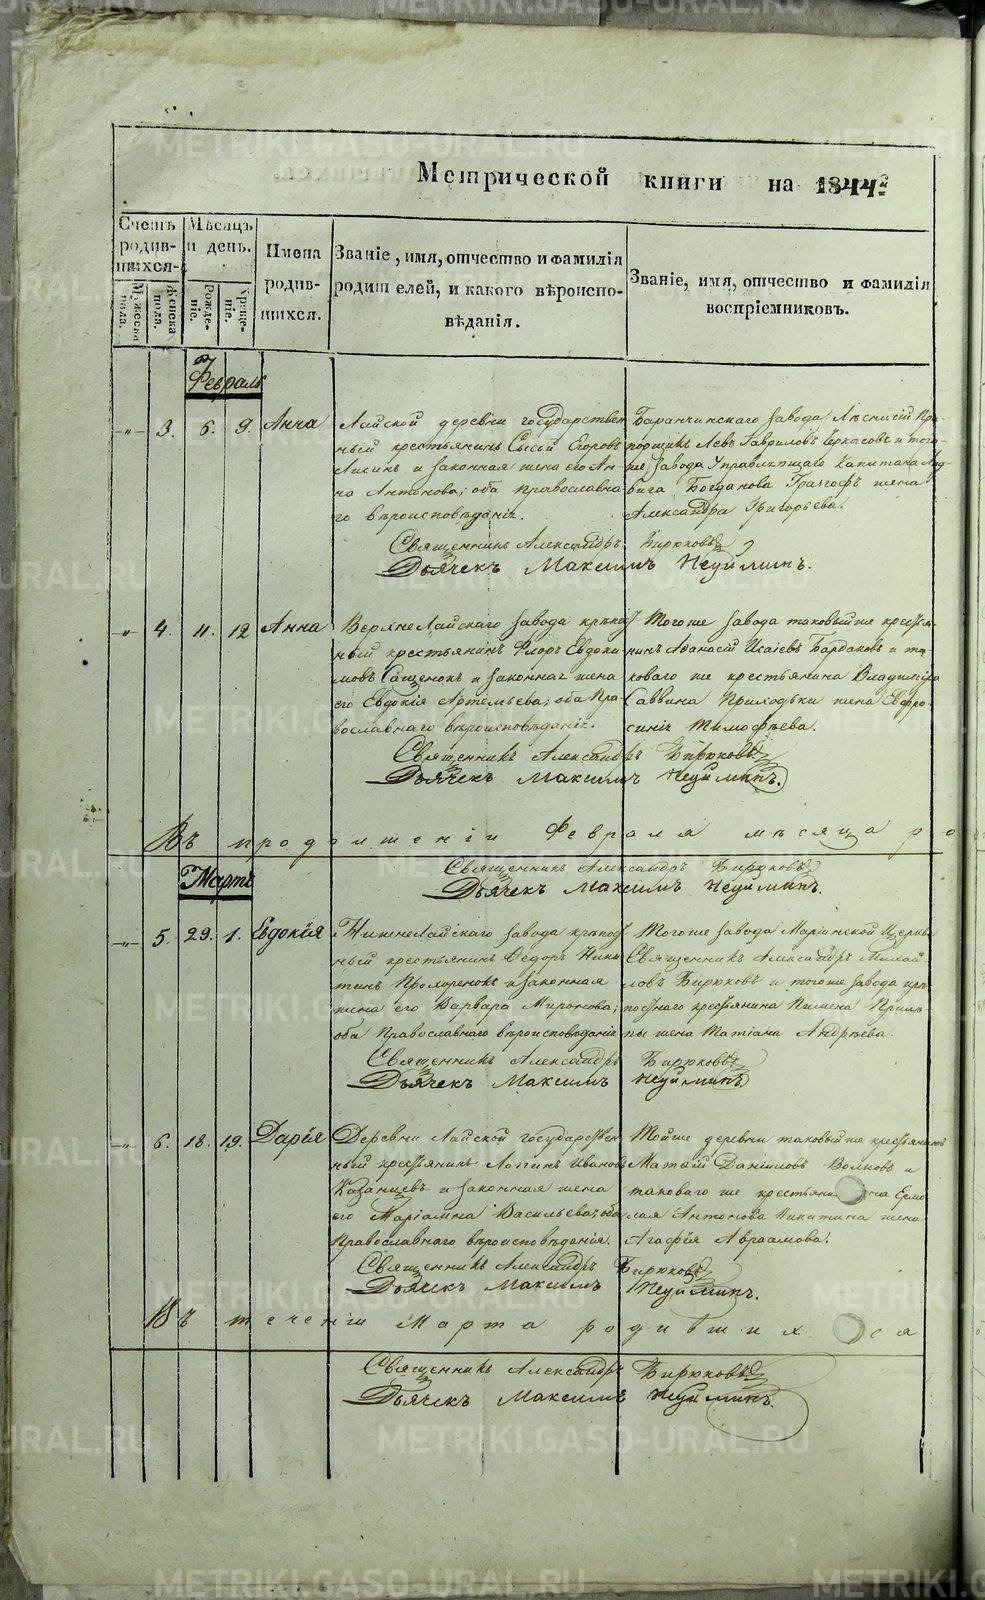 Метрической книги на 1844й
Счетъ родив-шихся.
Мѣсяцъ и день.
Имена родив-шихся.
Званіе, имя, отчество и фамилія родителей, и какого вѣроиспо-вѣданія.
Званіе, имя, отчество и фамилія воспріемниковъ.
Мужеска пола.
Женска пола.
Рожде-ніе.
Креще-ніе.
Февраль
3. 6. 9. Анна
Лайской деревни государствен
ный крестьянинъ Сысой Егоровъ
и законная жена его Ан-
на Антонова; оба православна
го вѣроисповѣданія.
Баранчинскаго завода Лѣсничій Пра-
порщикъ Левъ Гавриловъ Черкасовъ и того-
же завода Управляющаго Капитана
Богданова жена
Александра Григорьева.
Священникъ Александръ Бирюковъ
Дьячекъ Максимъ Неуйминъ.
4. 11. 12 Анна
Верхнелайскаго завода крѣпос
ный крестьянинъ Флоръ Евдоки
мовъ Сащенокъ и законная жена
его Евдокія Артемьева; оба Пра
вославнаго вѣроисповѣданія.
Тогоже завода таковыйже кресть-
нинъ Афанасій Исаіевъ Бардаковъ и та
коваго же крестьянина Владиміра
Саввина Приходьки жена Евфро-
синія Тимофѣева.
Священникъ Александръ Бирюковъ
Дьячекъ Максимъ Неуйминъ.
Въ продолженіи Февраля мѣсяца ро
Священникъ Александръ Бирюковъ
Дьячекъ Максимъ Неуйминъ.
Мартъ
5. 29. 1. Евдокія
Нижнелайскаго завода крѣпос
ный крестьянинъ Ѳедоръ Ники
тинъ Прохоренокъ и законная
жена его Варвара Миронова;
оба Православнаго вѣроисповѣданіе
Тогоже завода Маріинской Церкви
Священникъ Александръ Михай-
ловъ Бирюковъ и тогоже завода крѣ-
поснаго крестьянина Пимена
жена Татіана Андрѣева.
Священникъ Александръ Бирюковъ
Дьячекъ Максимъ Неуйминъ
6. 18. 19. Дарія
Деревни Лайской государствен
ный крестьянинъ Логинъ Ивановъ
Казанцевъ и законная жена
его Маріамна Васильева; оба
Православнаго вѣроисповѣданія.
Тойже деревни таковыйже крестьянинъ
Матѳій Даниловъ Волковъ и
таковаго же крестьянина Ермо
лая Антонова Никитина жена
Агафія Авраамова.
Священникъ Александръ Бирюковъ
Дьячекъ Максимъ Неуйминъ.
Въ теченіи Марта родившихся
Священникъ Александръ Бирюковъ
Дьячекъ Максимъ Неуйминъ.
METRIKI.GASO-URAL.RU